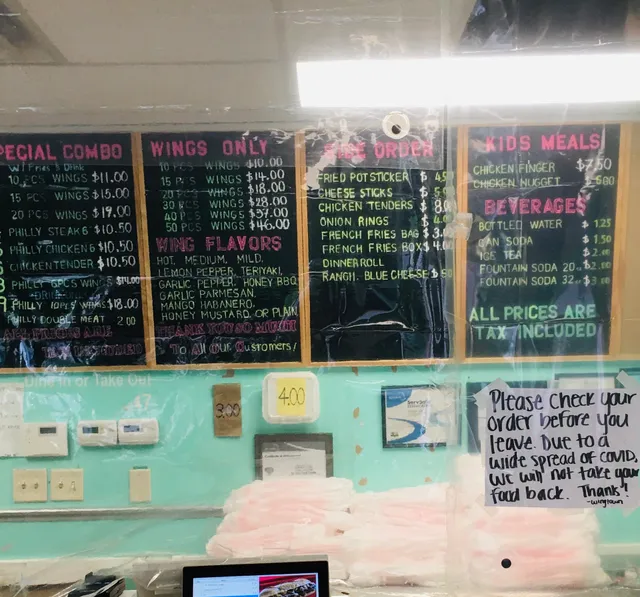 PECIAL COMBO
W/ FRIES & DRINK
10 PCS WINGS $11.00
15 PCS WINGS $15.00
20 PCS WINGS $19.00
PHILLY STEAK 6 $10.50
PHILLY CHICKEN 6 $10.50
CHICKEN TENDER $10.50
PHILLY 6PCS WINGS $14.00
PHILLY 10PCS WINGS $18.00
PHILLY DOUBLE MEAT 2.00
ALL PRICES ARE
TAX INCLUDED
WINGS ONLY
10 PCS WINGS $10.00
15 PCS WINGS $14.00
20 PCS WINGS $18.00
30 PCS WINGS $28.00
40 PCS WINGS $37.00
50 PCS WINGS $46.00
WING FLAVORS
HOT, MEDIUM, MILD,
LEMON PEPPER, TERIYAKI,
GARLIC PEPPER, HONEY BBQ
GARLIC PARMESAN,
MANGO HABANERO,
HONEY MUSTARD OR PLAIN
THANK YOU SO MUCH
TO All OUR Customers!
SIDE ORDER
FRIED POTSTICKER $ 4.50
CHEESE STICKS $
CHICKEN TENDERS $ 8.
ONION RINGS $ 4.
FRENCH FRIES BAG $ 3.
FRENCH FRIES BOX $ 4.00
DINNER ROLL
RANCH, BLUE CHEESE $ 50
KIDS MEALS
CHICKEN FINGER $7.50
CHICKEN NUGGET
BEVERAGES
BOTTLED WATER $ 1.25
CAN SODA $ 1.50
ICE TEA $ 2.
FOUNTAIN SODA 20 $ 2.
FOUNTAIN SODA 32 $ 3.
ALL PRICES ARE
TAX INCLUDED
Dine In or Take Out
3.00
4.00
Please check your
order before you
leave. Due to a
wide spread of covid,
we will not take your
food back. Thanks!
-wingtown